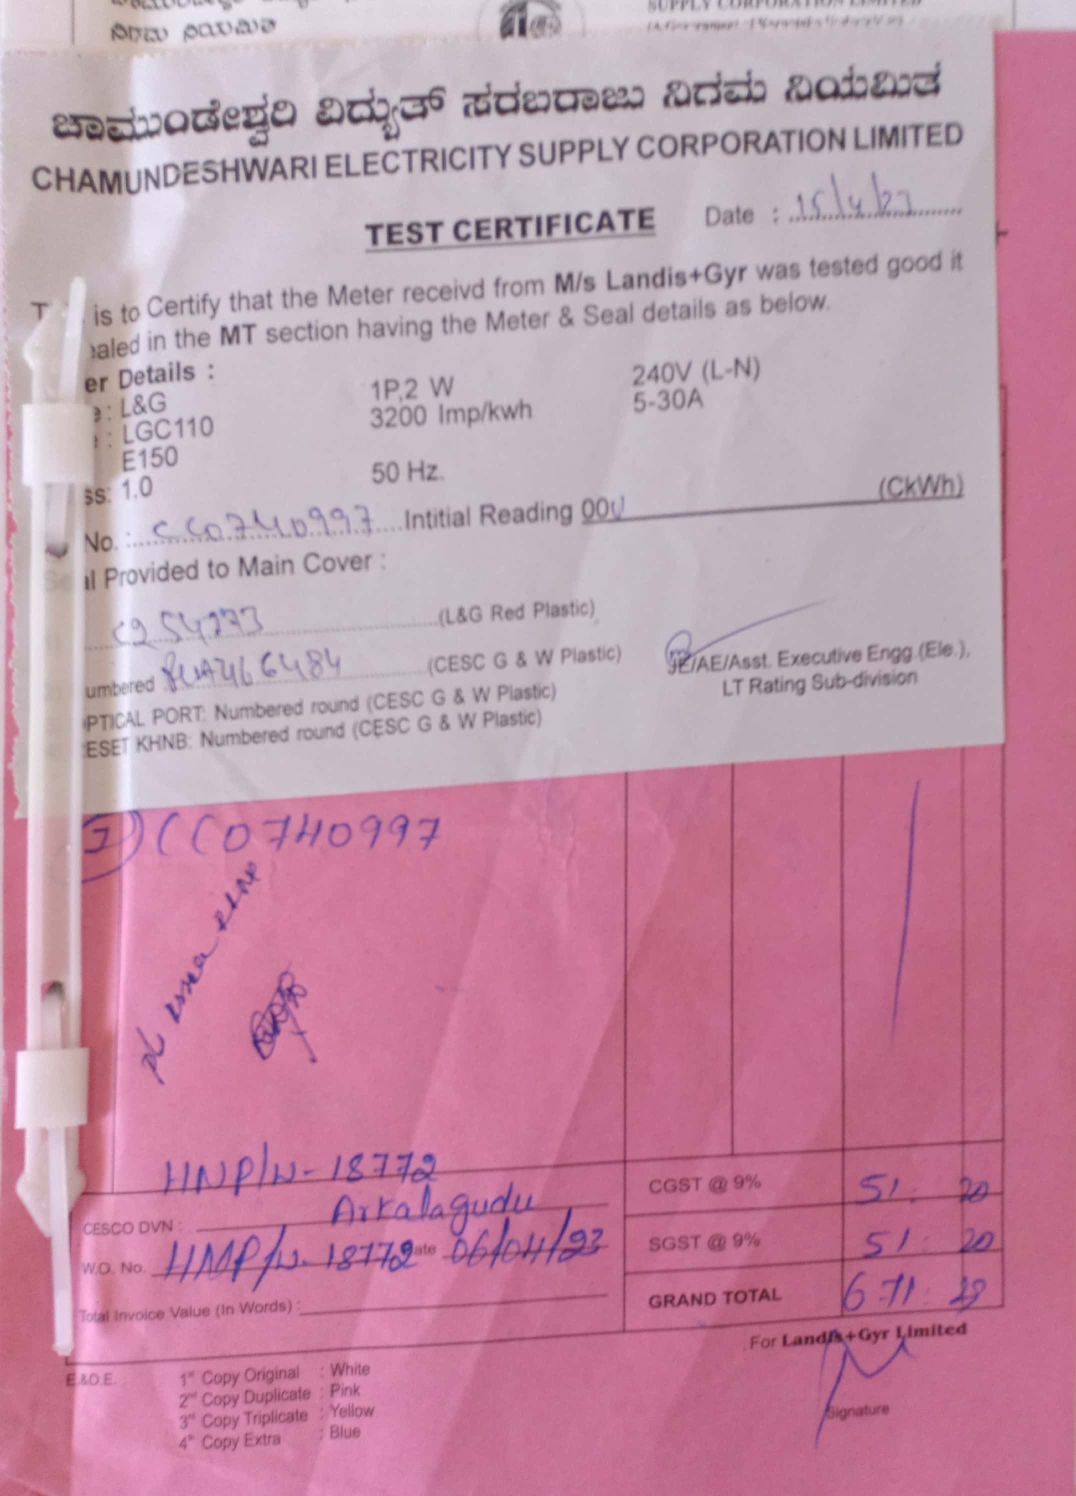 ನಿಗಮ ನಿಯಮಿತ
SUPPLY CORPORATION LIMITED
ಚಾಮುಂಡೇಶ್ವರಿ ವಿದ್ಯುತ್ ಸರಬರಾಜು ನಿಗಮ ನಿಯಮಿತ
CHAMUNDESHWARI ELECTRICITY SUPPLY CORPORATION LIMITED
TEST CERTIFICATE Date : 15/4/23
is to Certify that the Meter receivd from M/s Landis+Gyr was tested good it
aled in the MT section having the Meter & Seal details as below.
er Details :
: L&G 1P,2 W 240V (L-N)
: LGC110 3200 Imp/kwh 5-30A
E150
ss: 1.0 50 Hz.
No. : CC0740997 Intitial Reading 00 (CkWh)
al Provided to Main Cover :
(L&G Red Plastic)
umbered (CESC G & W Plastic)
PTICAL PORT: Numbered round (CESC G & W Plastic)
ESET KHNB: Numbered round (CESC G & W Plastic)
JE/AE/Asst. Executive Engg.(Ele.),
LT Rating Sub-division
CC0740997
HNP/N-18772
CGST @ 9% 51.20
CESCO DVN : Arkalagudu
SGST @ 9% 51.20
W.O. No. HNP/N-18772 ate 06/04/23
GRAND TOTAL 671.
Total Invoice Value (In Words) :
For Landis+Gyr Limited
E.&O.E. 1st Copy Original : White
2nd Copy Duplicate : Pink
3rd Copy Triplicate : Yellow
4th Copy Extra : Blue
Signature